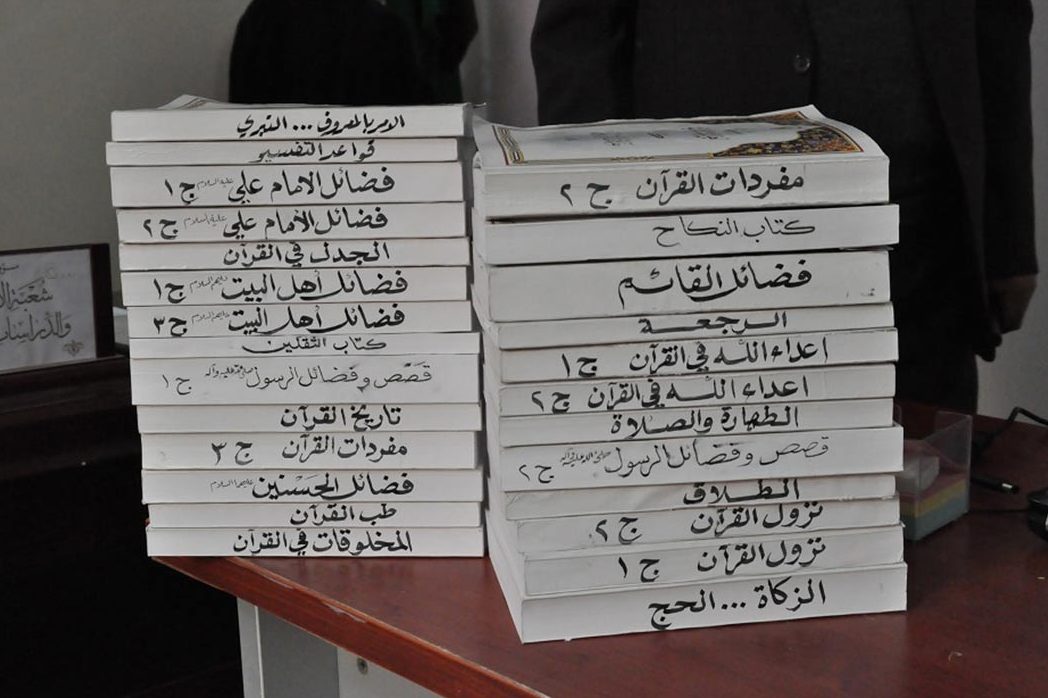 الامر بالمعروف ... التبري
قواعد التفسير
فضائل الامام علي عليه السلام ج ١
فضائل الأمام علي عليه السلام ج ٢
الجدل في القرآن
فضائل أهل البيت عليهم السلام ج ١
فضائل أهل البيت عليهم السلام ج ٣
كتاب الثقلين
قصص وفضائل الرسول صلى الله عليه وآله ج ١
تاريخ القرآن
مفردات القرآن ج ٣
فضائل الحسنين عليهما السلام
طب القرآن
المخلوقات في القرآن
مفردات القرآن ج ٢
كتاب النكاح
فضائل القائم
الرجعة
اعداء اللّه في القرآن ج ١
اعداء اللّه في القرآن ج ٢
الطهارة والصلاة
قصص وفضائل الرسول صلى الله عليه وآله ج ٢
الطلاق
نزول القرآن ج ٢
نزول القرآن ج ١
الزكاة ... الحج
شعبة
والدراسات